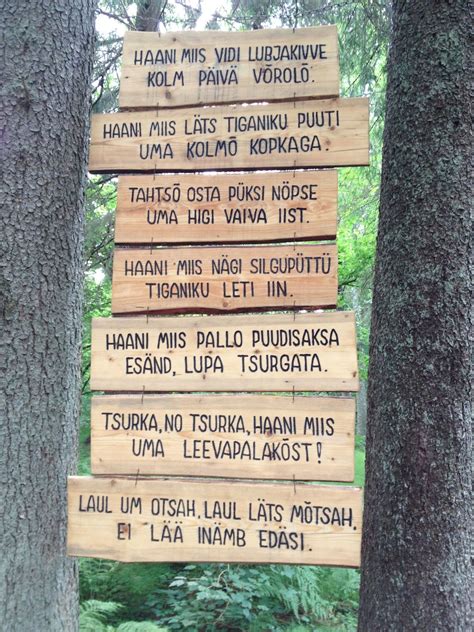 HAANI MIIS VIDI LUBJAKIVVE
KOLM PÄIVÄ VÕROLÕ.
HAANI MIIS LÄTS TIGANIKU PUUTI
UMA KOLMÕ KOPKAGA.
TAHTSÕ OSTA PÜKSI NÖPSE
UMA HIGI VAIVA IIST.
HAANI MIIS NÄGI SILGUPÜTTÜ
TIGANIKU LETI IIN.
HAANI MIIS PALLO PUUDISAKSA
ESÄND, LUPA TSURGATA.
TSURKA, NO TSURKA, HAANI MIIS
UMA LEEVAPALAKÕST!
LAUL UM OTSAH, LAUL LÄTS MÕTSAH,
EI LÄÄ INÄMB EDÄSI.